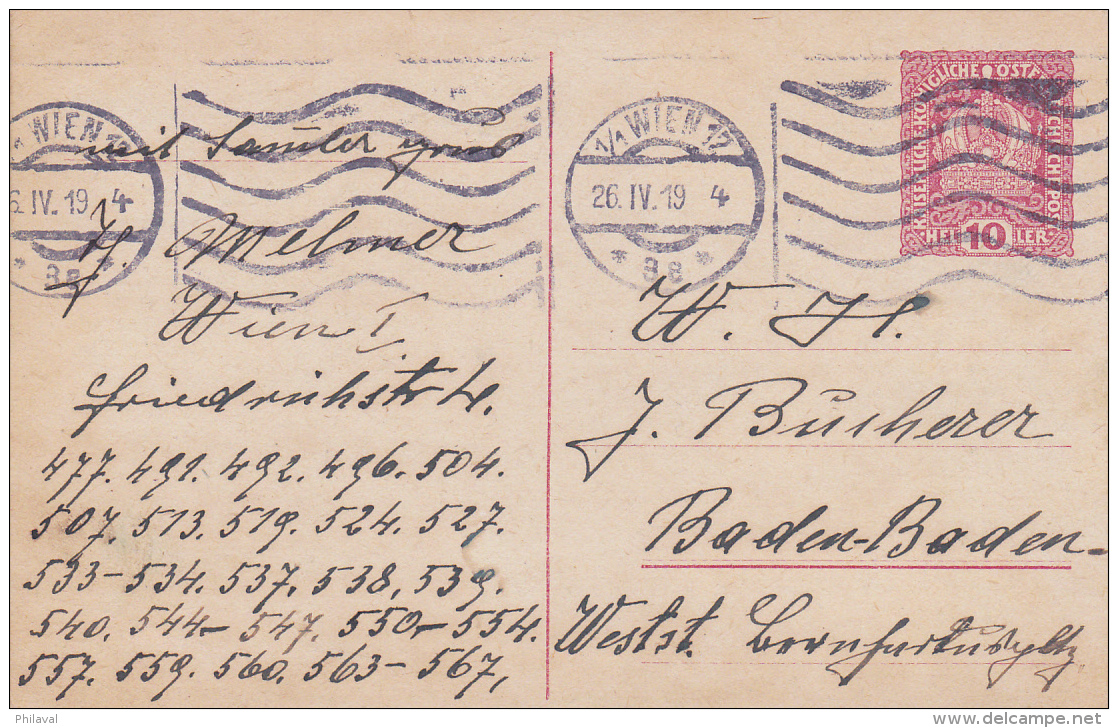 1/1 WIEN 1
26. IV. 19 4
* 8a *
1/1 WIEN 1
26. IV. 19 4
* 8a *
KAISERLICH KÖNIGLICHE ÖSTERREICHISCHE POST
HELLER 10
mit Samler
Melmer
Wien I,
Friedrichstr 4.
477. 491. 492. 496. 504.
507. 513. 519. 524. 527.
533-534. 537, 538, 539.
540. 544-547. 550-554.
557. 559. 560. 563-567,
W. H.
J. Bucherer
Baden-Baden-
Westst.
Philaval
www.delcampe.net